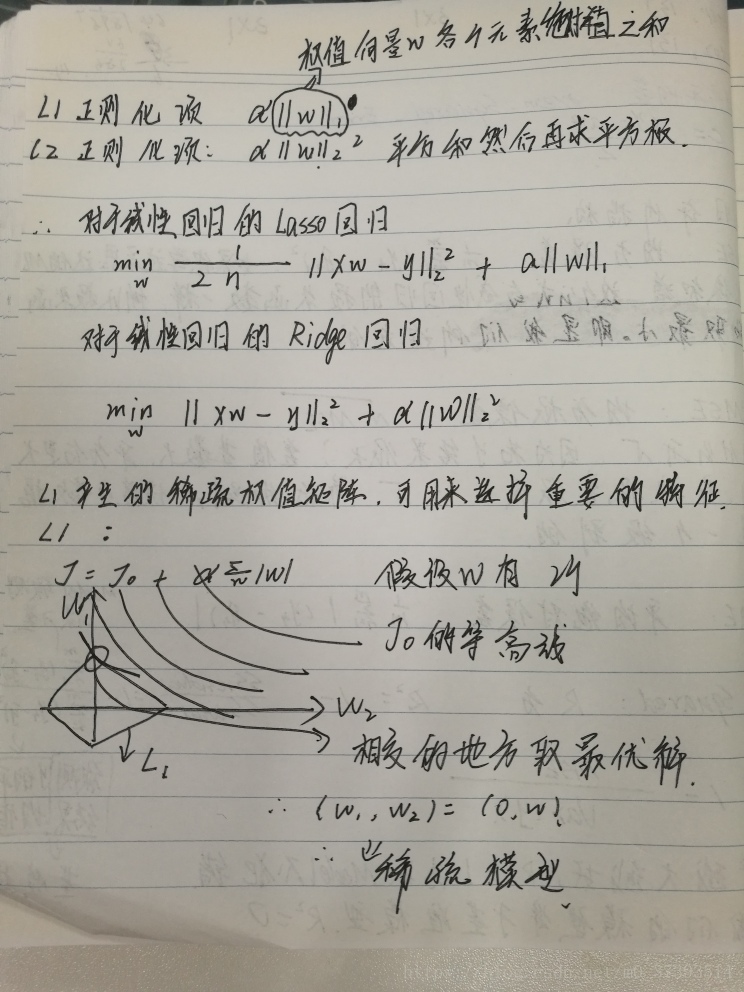 权值向量w各个元素绝对值之和
L1正则化项 α||w||₁
L2正则化项: α||w||₂² 平方和然后再求平方根.
∴ 对于线性回归的Lasso回归
min w 1/2n ||Xw-y||₂² + α||w||₁
对于线性回归的Ridge回归
min w ||Xw-y||₂² + α||w||₂²
L1产生的稀疏权值矩阵,可用来选择重要的特征.
L1:
J = J₀ + α Σw |w| 假设W有2个
W₁
J₀的等高线
W₂
L1
相交的地方取最优解.
∴ (w₁, w₂) = (0, w)
∴ 稀疏模型